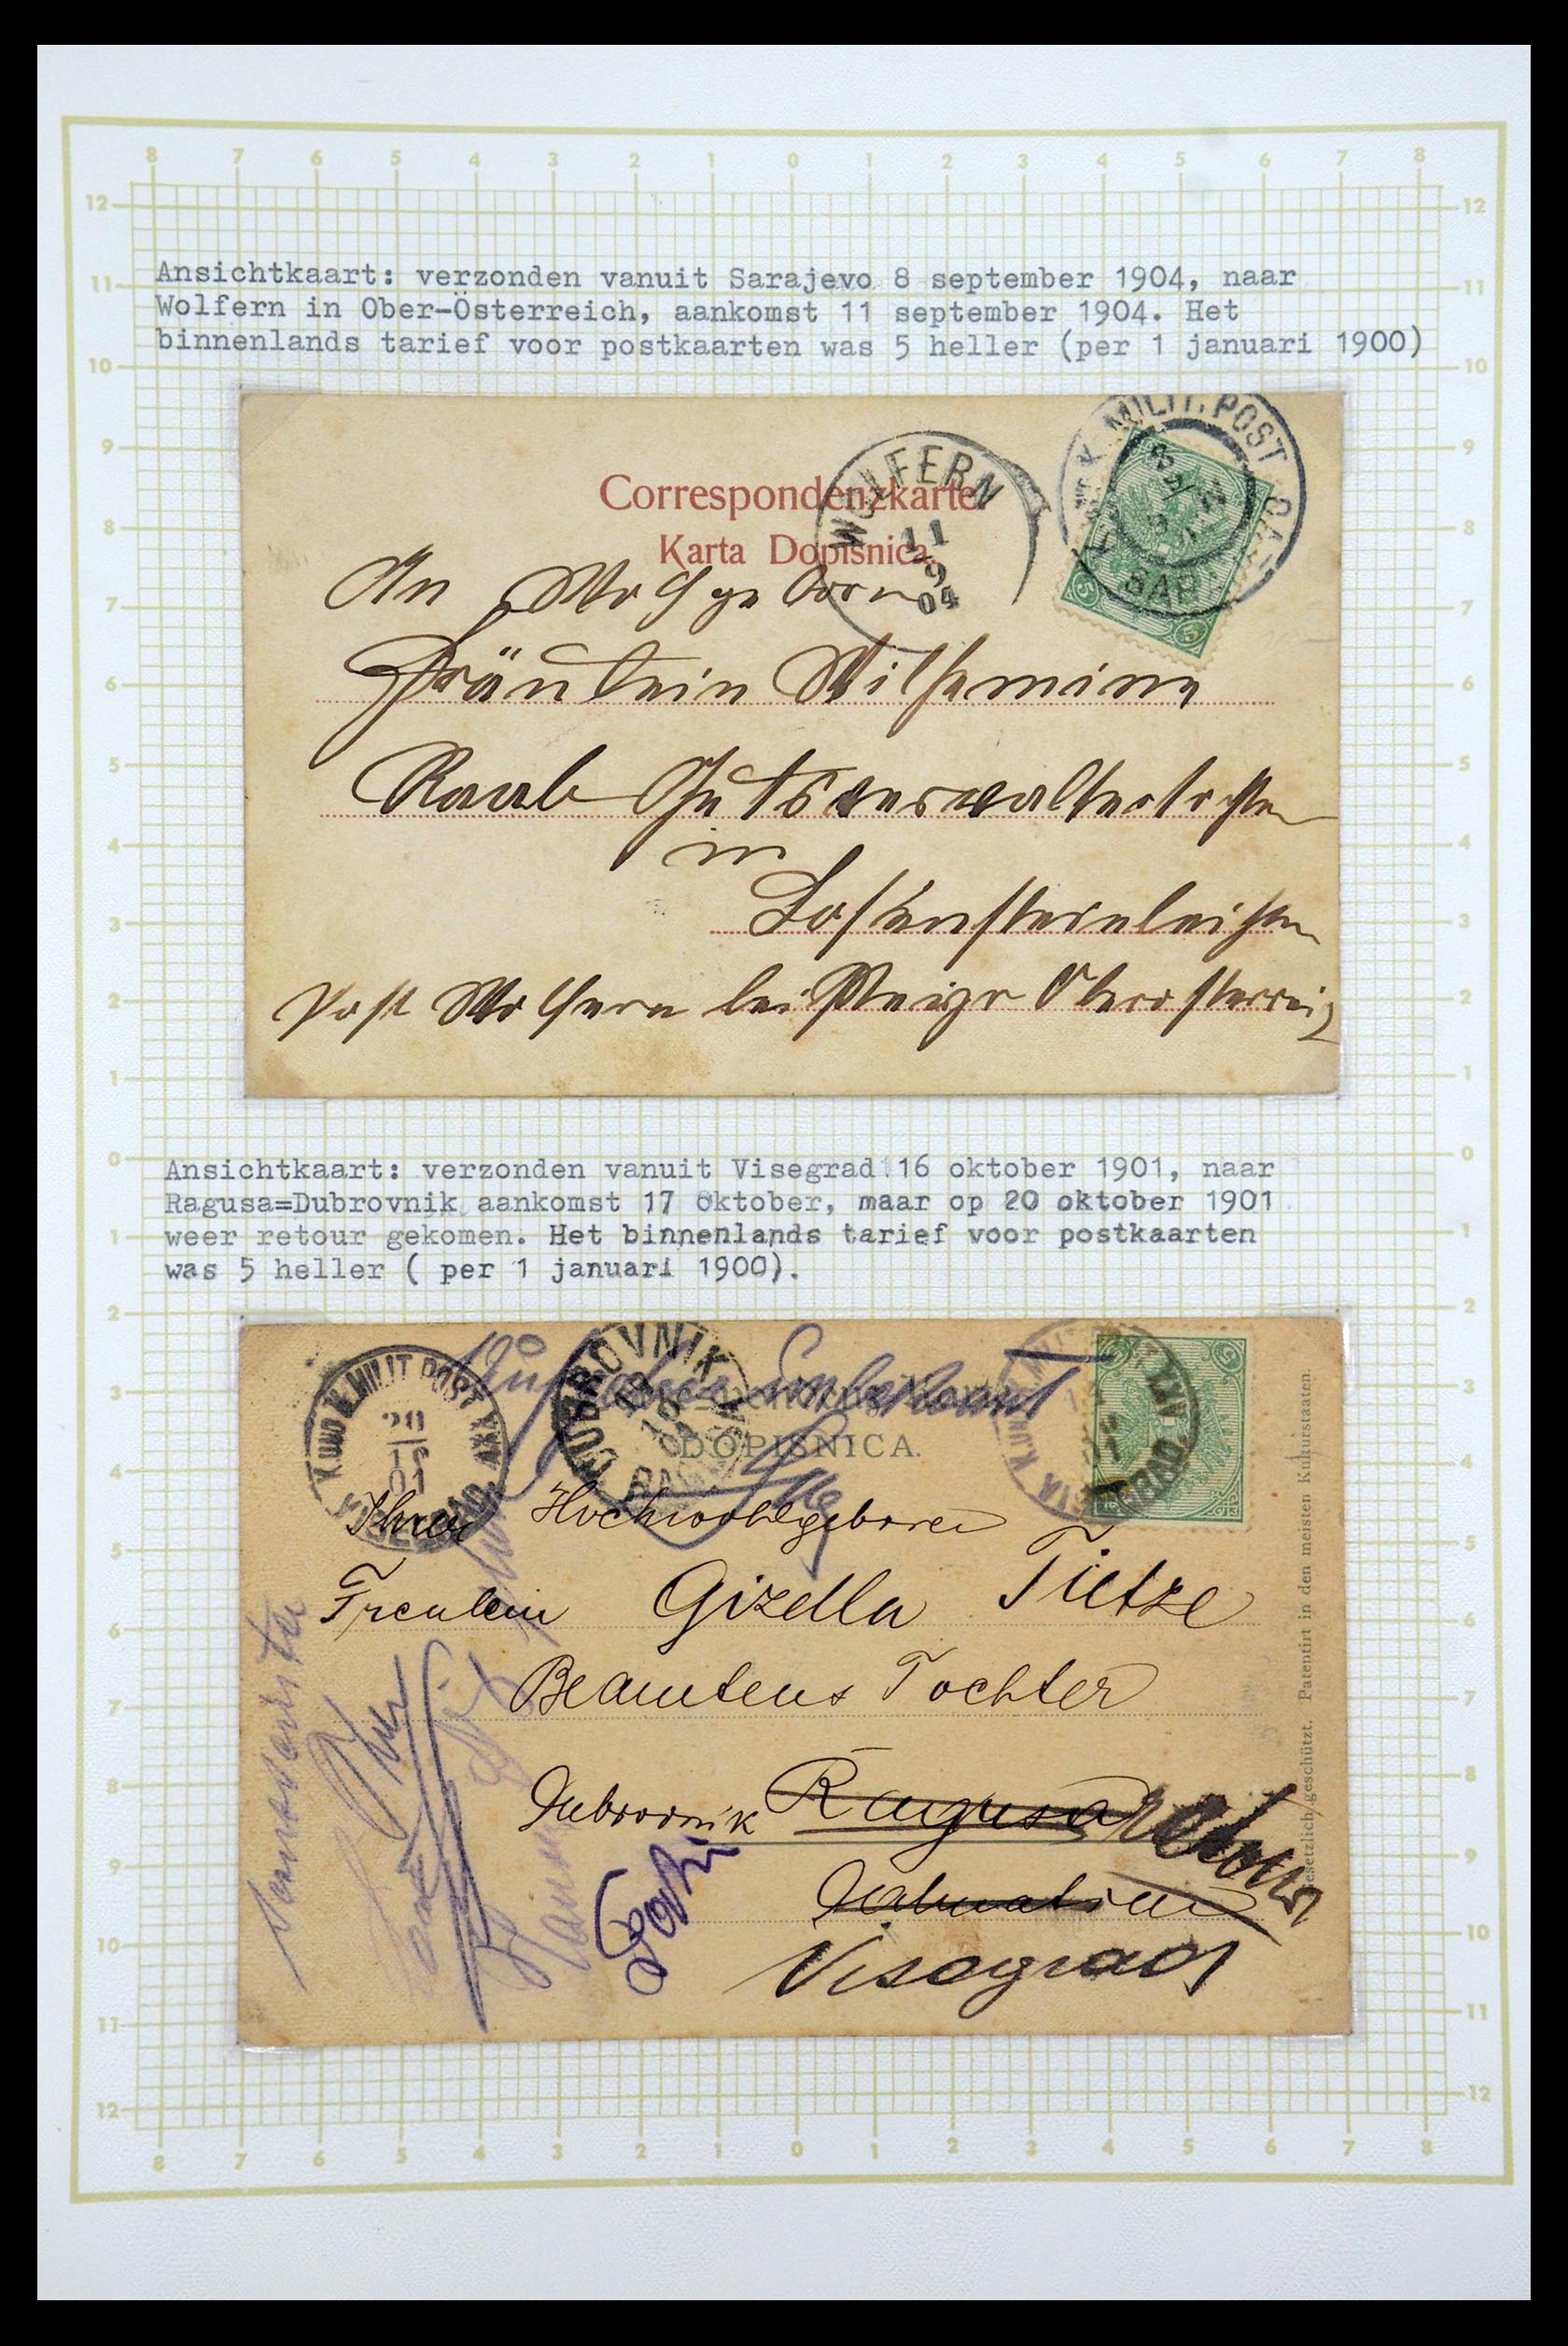 8 7 6 5 4 3 2 1 0 1 2 3 4 5 6 7 8
Ansichtkaart: verzonden vanuit Sarajevo 8 september 1904, naar
Wolfern in Ober-Österreich, aankomst 11 september 1904. Het
binnenlands tarief voor postkaarten was 5 heller (per 1 januari 1900)
K. MILIT. POST
SAR
5 5
WOLFERN
11
9
04
Correspondenzkarte
Karta Dopisnica.
An Wohlgeborne
Fräulein Wilhemine
Raab Gutsverwalterstochter
in
Losensteinleithen
Post Wolfern bei Steyr Oberösterreich
Ansichtkaart: verzonden vanuit Visegrad 16 oktober 1901, naar
Ragusa=Dubrovnik aankomst 17 oktober, maar op 20 oktober 1901
weer retour gekomen. Het binnenlands tarief voor postkaarten
was 5 heller ( per 1 januari 1900).
K. UND K. MILIT POST
20
10
01
DUBROVNIK
unbekannt
DOPISNICA.
Ihrer Hochwohlgeboren
Freulein Gizella Tietze
Beamtens Tochter
Dubrovnik Ragusa retour
Dalmatien
Visegrad
Gesetzlich geschützt. Patentirt in den meisten Kulturstaaten.
8 7 6 5 4 3 2 1 0 1 2 3 4 5 6 7 8
12 11 10 9 8 7 6 5 4 3 2 1 0 1 2 3 4 5 6 7 8 9 10 11 12
12 11 10 9 8 7 6 5 4 3 2 1 0 1 2 3 4 5 6 7 8 9 10 11 12